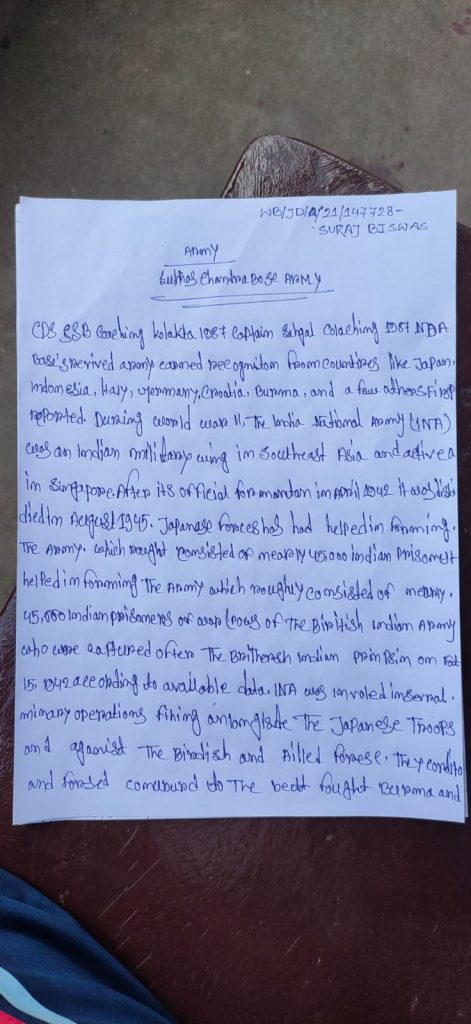 WB/JD/A/21/147728-
SURAJ BISWAS
Army
Subhas Chandra Bose ARMY
CDS SSB Coaching kolakta 1987 Captain Sehgal Colaching 1987 NDA
Base's revived army earned recognition from countires like Japan,
Indonesia, Italy, Germany, Croatia, Burma, and a few others. First
reported. During world war II, The India National Army (INA)
was an Indian military wing in Southeast Asia and active a
in Singapore. After its official in April 1942 it was
died in August 1945. Japanase forces has had helped in forming.
The Army. which rought consisted of nearly 45,000 Indian
helped in forming The Army which roughly consisted of
45,000 Indian prisoners of war (pows of The Indian Army
who were captured often The Indian on
15, 1942 according to available data. INA was in
operations The Japanese Troops
and aganist The and Allied
and to The fought Burma and